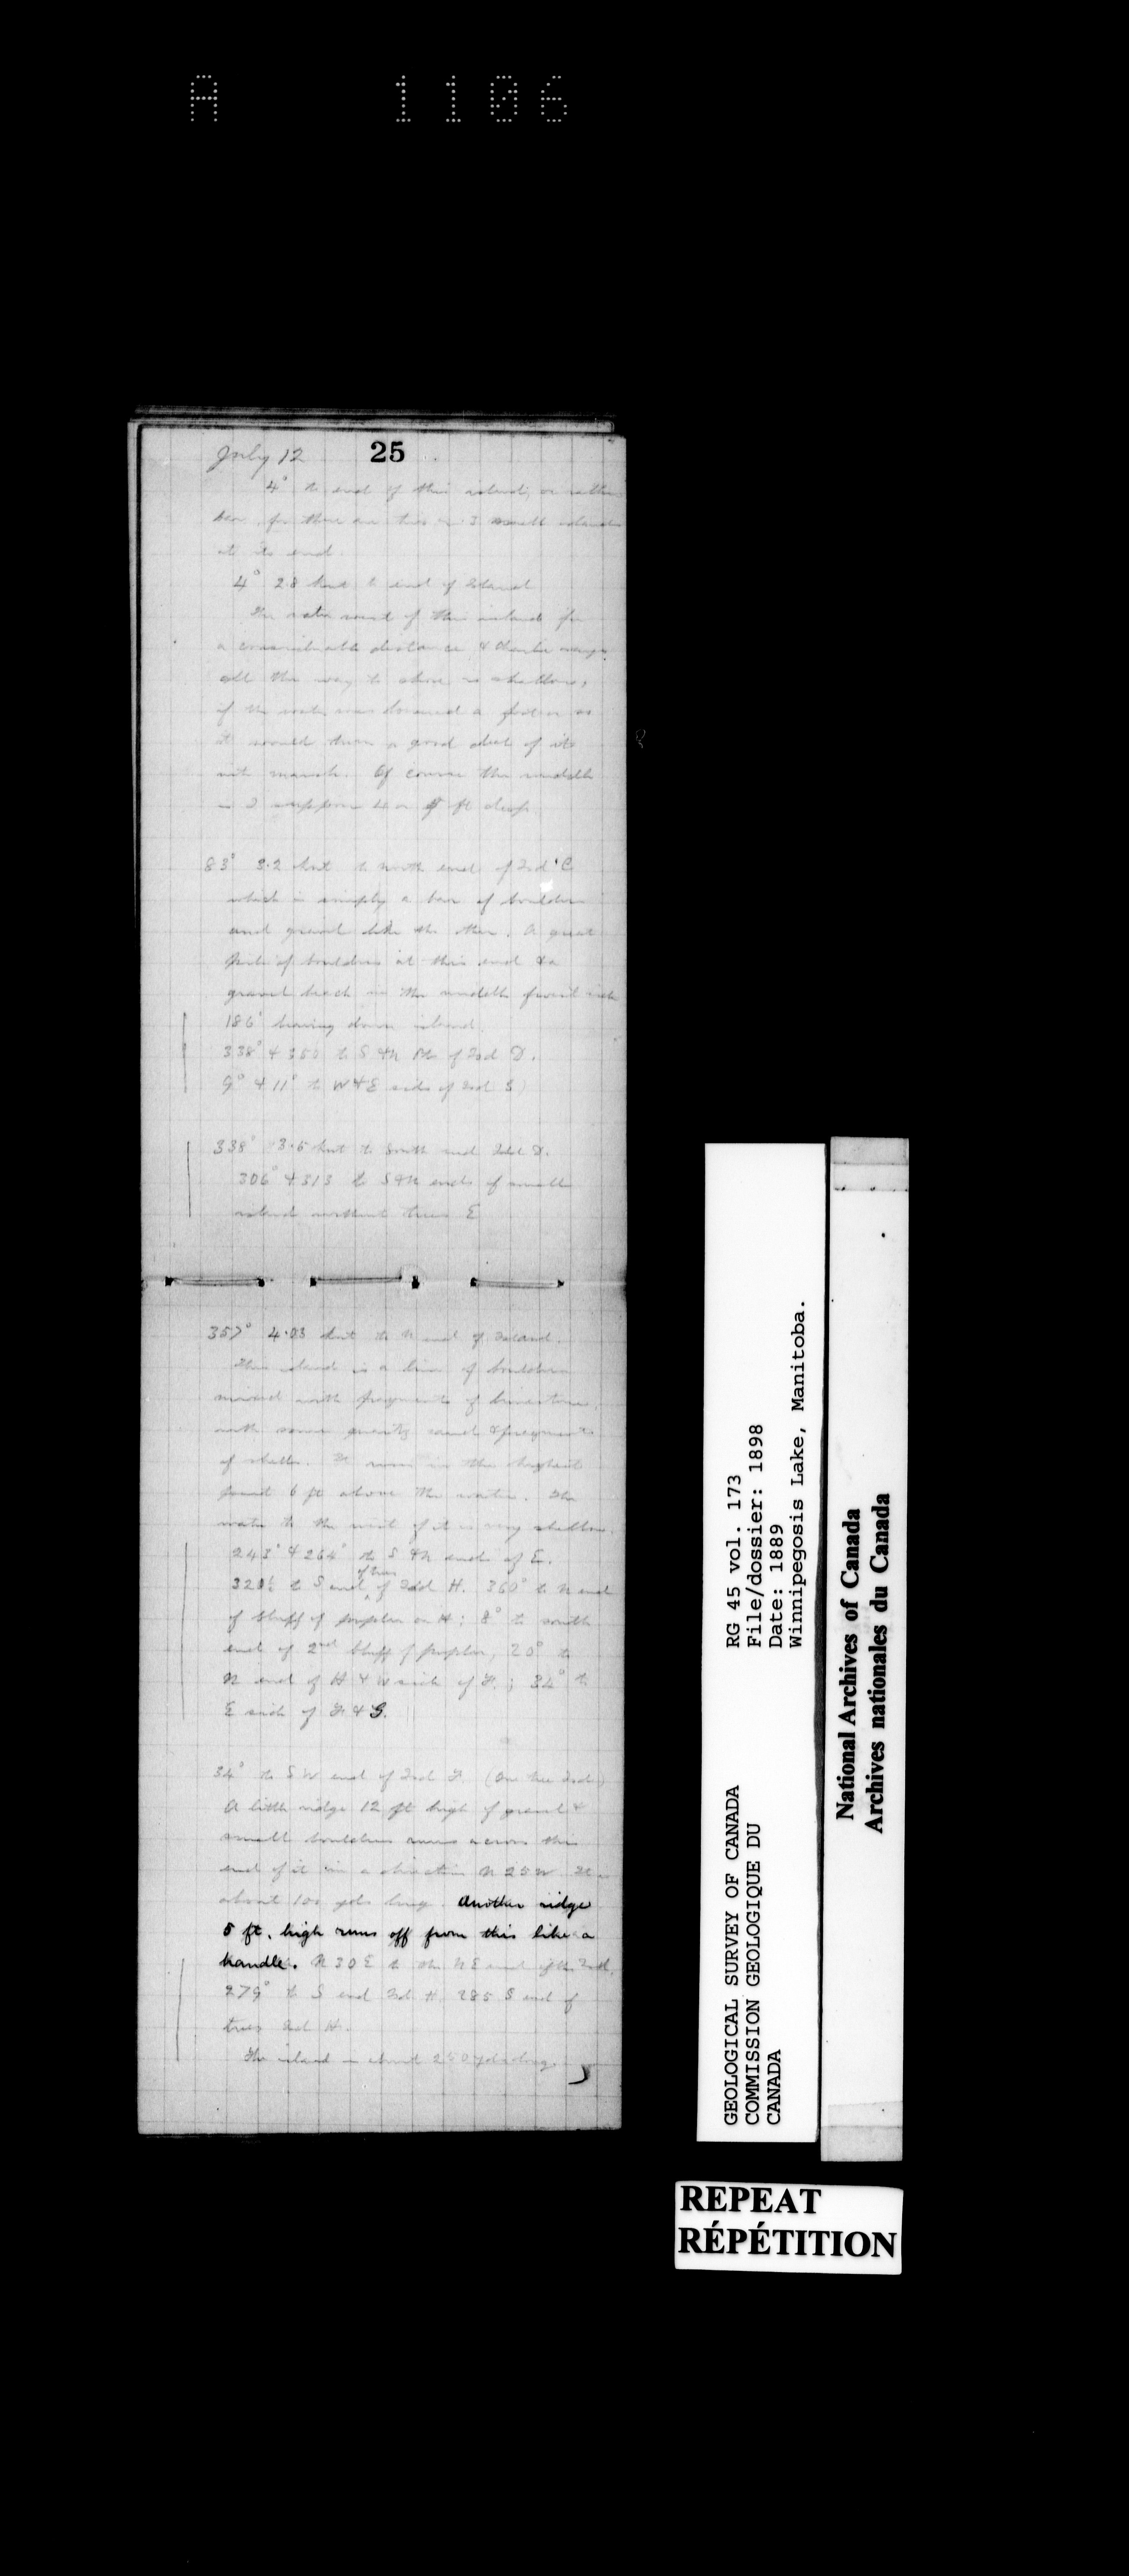 A 1106
July 12 25
4° to end of this island, or rather
bar, for there are two or 3 small islands
at its end.
4° 2.8 knt to end of Island
The water round of this island for
a considerable distance & 
all the way to shore is shallow,
if the water was lowered a foot or so
it would turn a good deal of it
into marsh. Of course the middle
is I suppose 4 or 5 ft deep.
83° 3.2 knt to north end of Isd C
which is simply a bar of boulders
and gravel like the other. A great
pile of boulders at this end & a
gravel beach in the middle
186° bearing down island.
338° & 350 to S & N Pts of Isd D.
9° & 11° to W & E sides of Isd
338° 3.5 knt to South end Isld D.
306° & 313 to S & N ends of small
island without trees E
357° 4.03 knt to N end of Island.
This island is a line of boulders
mixed with fragments of limestone,
with some sand & fragments
of shells. It runs in the highest
point 6 ft above the water. The
water to the west of it is very shallow.
243° & 264° to S & N ends of E.
320½ to S end of trees of Isd H. 360° to N end
of bluff of poplar on H; 8° to south
end of 2nd bluff of poplar, 20° to
N end of H & W side of F; 34° to
E side of F & G.
34° to SW end of Isd F. (
A little ridge 12 ft high of gravel &
small boulders runs across the
end of it in a direction N 25 W. It is
about 100 yds long. Another ridge
5 ft. high runs off from this like a
handle. N 30 E to the NE end of the Isd.
279° to S end Isd H. 285 S end of
trees Isd H.
The island is about 250 yds long.
GEOLOGICAL SURVEY OF CANADA
COMMISSION GEOLOGIQUE DU
CANADA
RG 45 vol. 173
File/dossier: 1898
Date: 1889
Winnipegosis Lake, Manitoba.
National Archives of Canada
Archives nationales du Canada
REPEAT
RÉPÉTITION